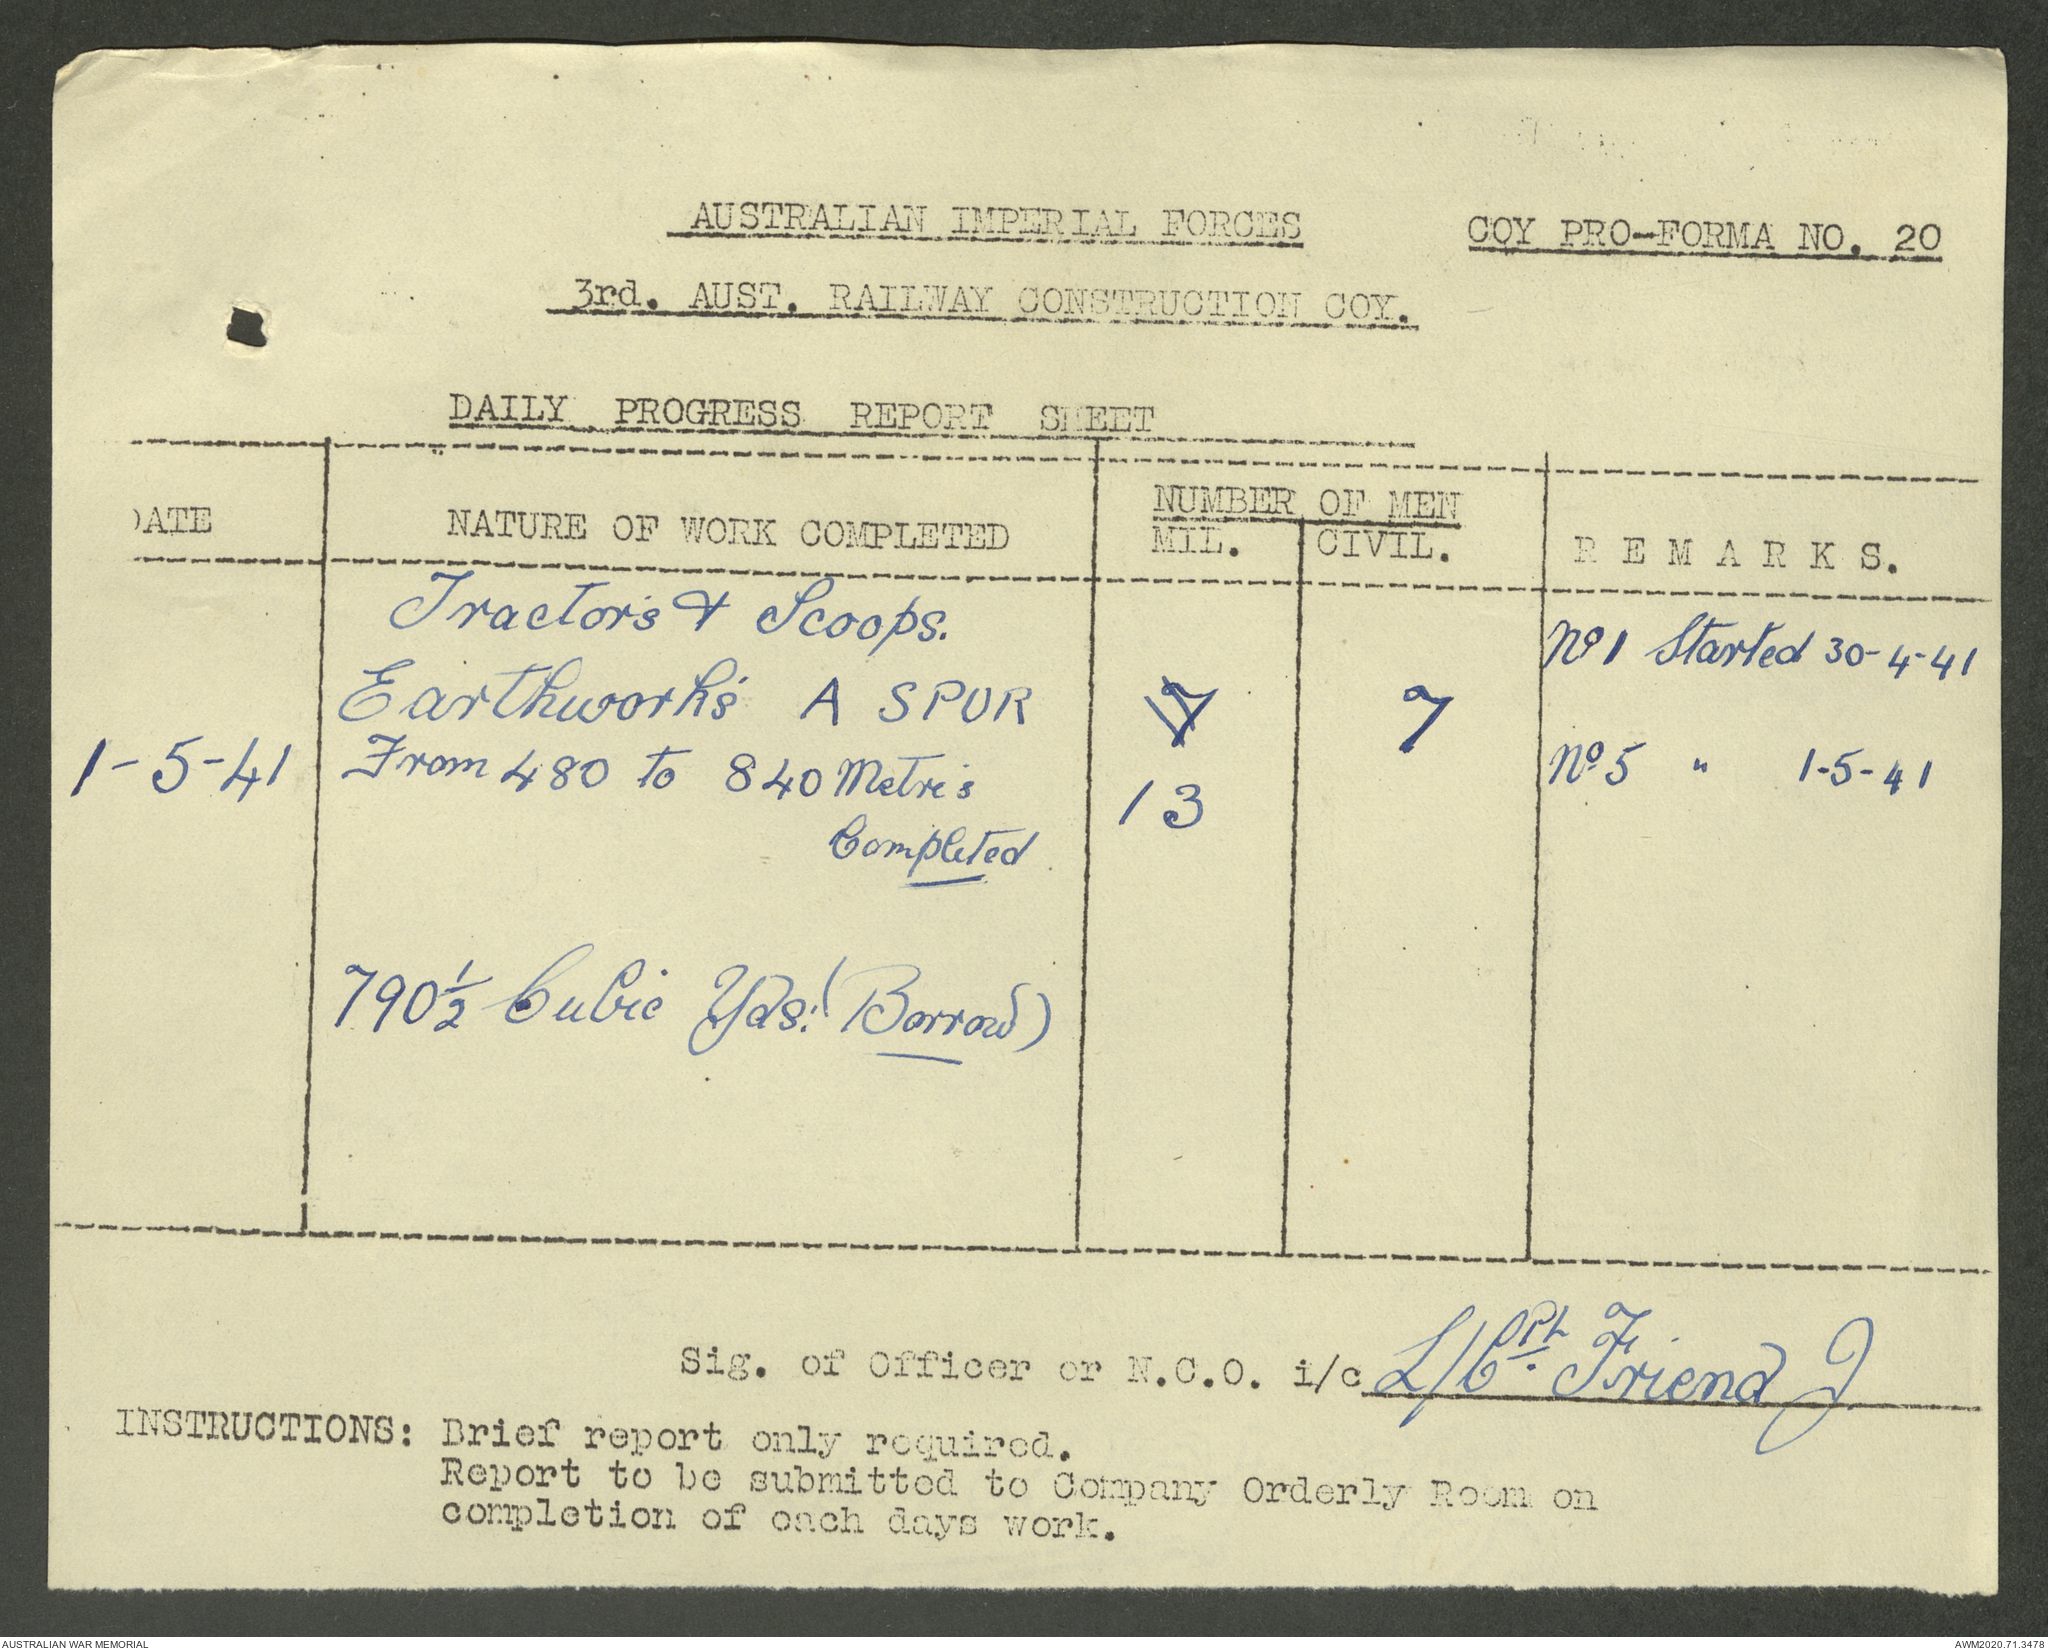 AUSTRALIAN IMPERIAL FORCES
COY PRO-FORMA NO. 20
3rd. AUST. RAILWAY CONSTRUCTION COY.
DAILY PROGRESS REPORT SHEET
DATE
NATURE OF WORK COMPLETED
NUMBER OF MEN
MIL. CIVIL.
REMARKS.
Tractor's & Scoops.
Earthwork's A SPUR
From 480 to 840 Metre's
Completed
790½ Cubic Yds. (Borrow)
1-5-41
7
13
7
No 1 Started 30-4-41
No 5 " 1-5-41
Sig. of Officer or N.C.O. i/c L/Cpl. Friend J
INSTRUCTIONS: Brief report only required.
Report to be submitted to Company Orderly Room on
completion of each days work.
AUSTRALIAN WAR MEMORIAL
AWM2020.71.3478